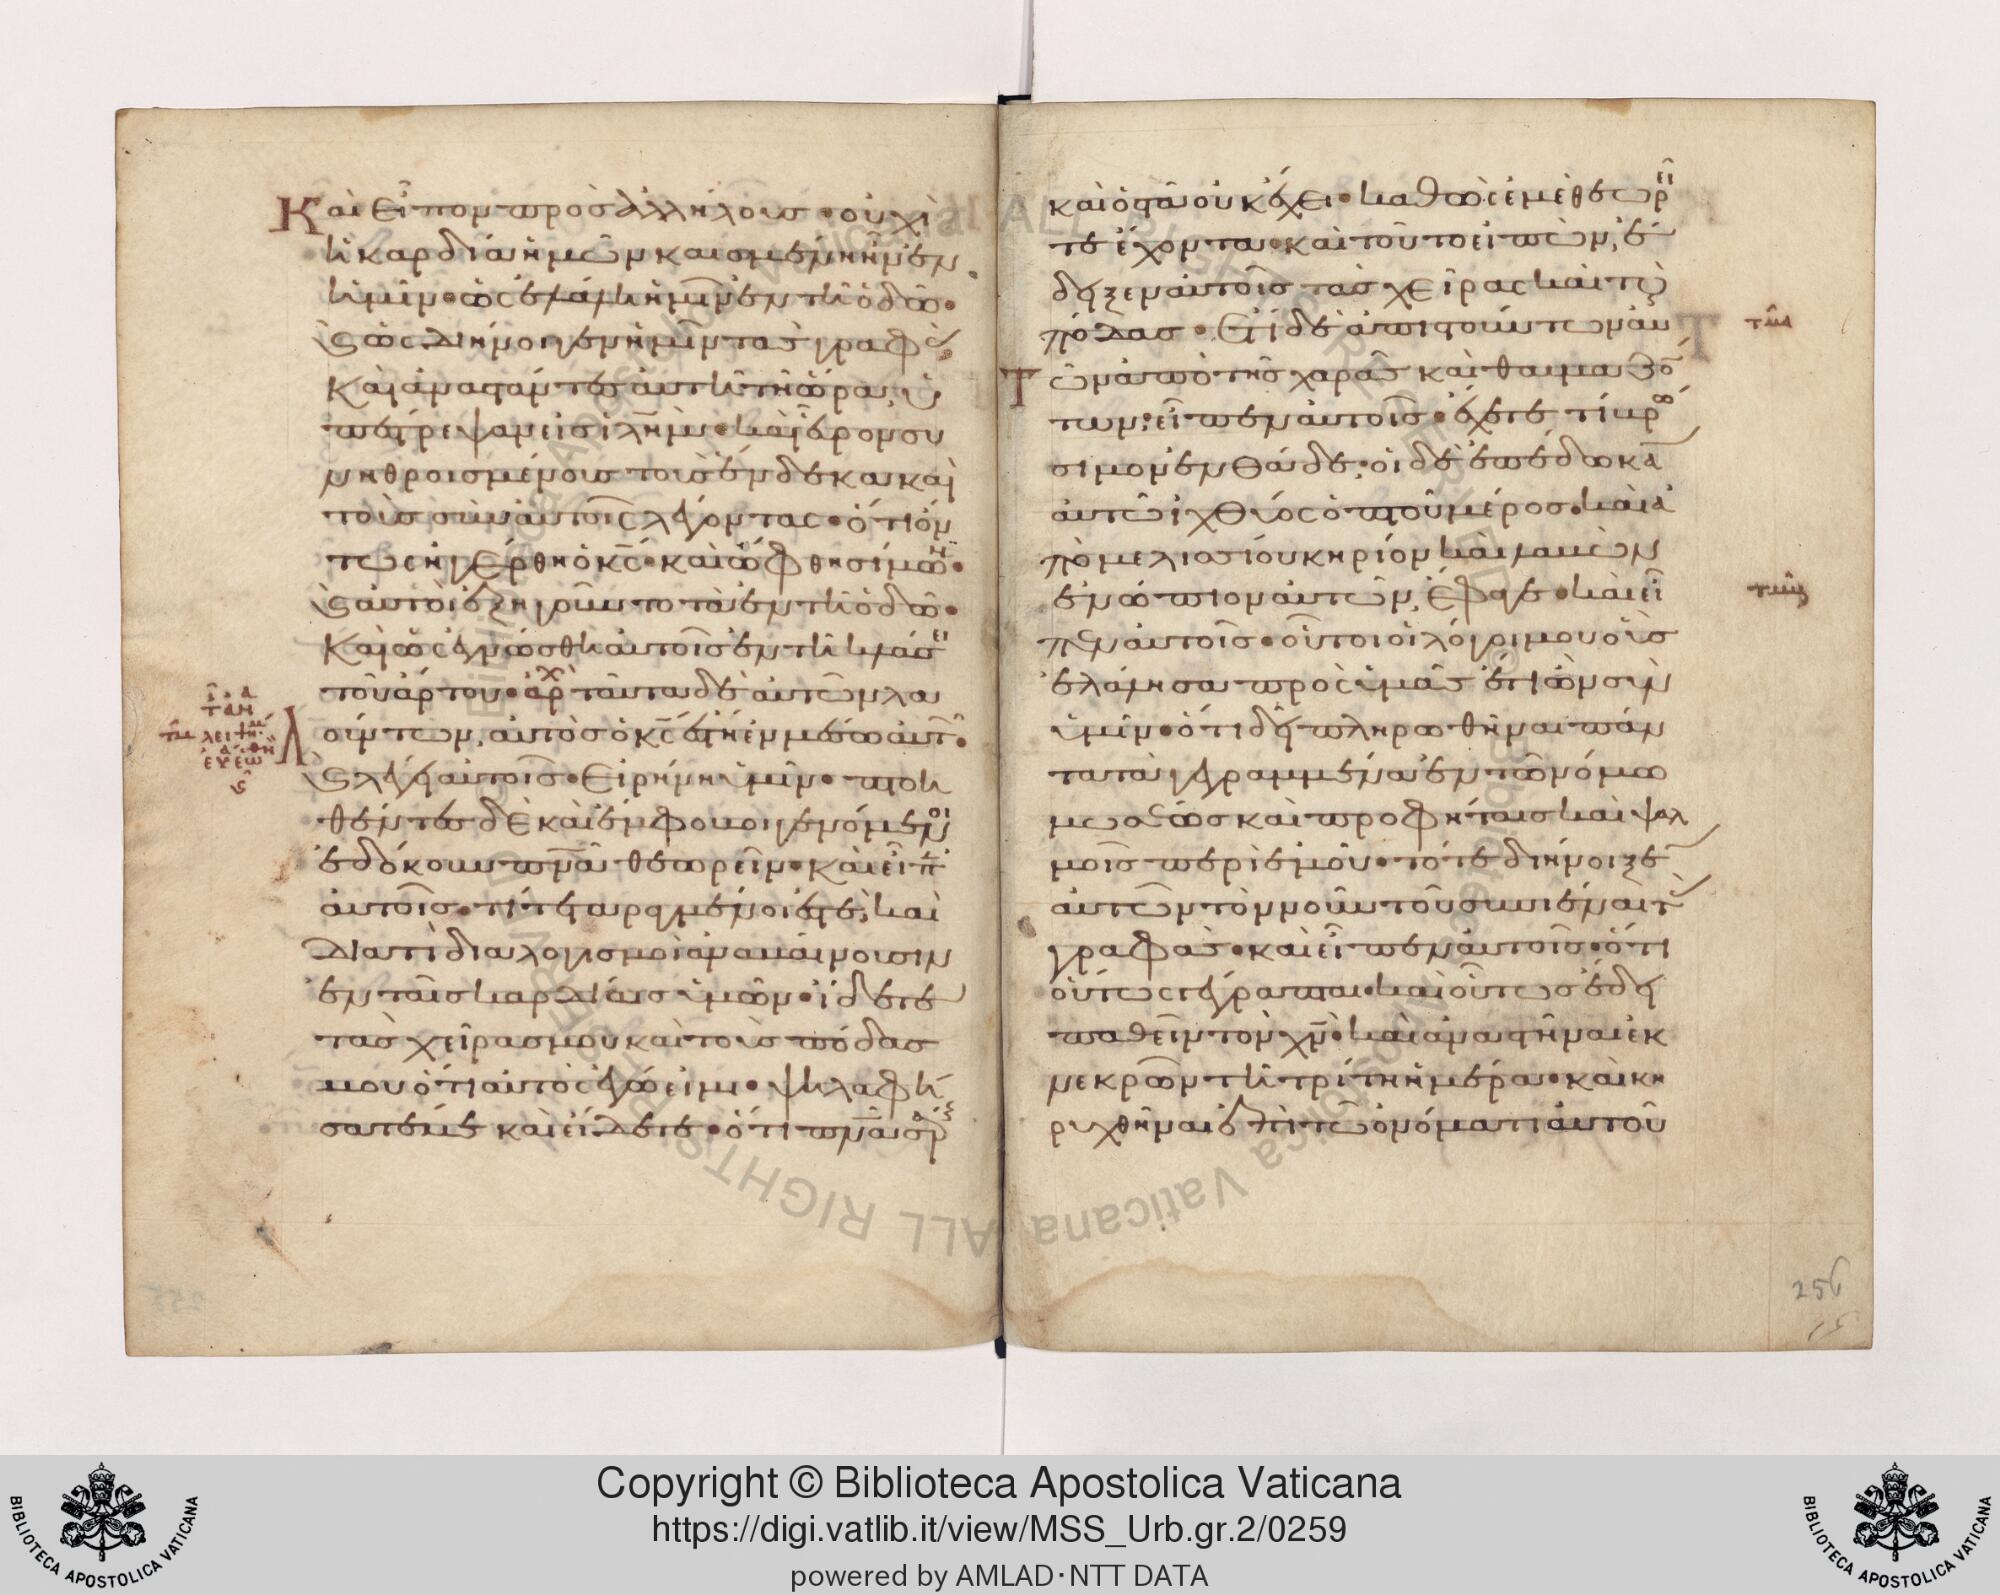 Καὶ εἶπον πρὸς ἀλλήλους · οὐχὶ
ἡ καρδία ἡμῶν καιομένη ἦν ἐν
ἡμῖν · ὡς ἐλάλη ἡμῖν ἐν τῆ ὁδῶ ·
ϗ ὡς διήνοιγεν ἡμῖν τὰς γραφάς
Καὶ ἀναστάντες αὐτῆ τῆ ὥρα, ὑ
πέστρεψαν εἰς ἰλῆμ · καὶ εὗρον συ
νηθροισμένους τοὺς ἕνδεκα καὶ
τοὺς σὺν αὐτοῖς λέγοντας · ὅτι ὄν
τως ἠγέρθη ὁ κς · καὶ ὤφθη σίμωνι ·
ϗ αὐτοὶ ἐξηγοῦντο τὰ ἐν τῆ ὁδῶ ·
Καὶ ὡς ἐγνώσθη αὐτοῖς ἐν τῆ κλάσει
τοῦ ἄρτου · ἀρχ ταῦτα δὲ αὐτῶν λα
λούντων, αὐτὸς ὁ ις ἔστη ἐν μέσω αὐτῶν ·
ϗ λέγει αὐτοῖς · Εἰρήνη ὑμῖν · πτοη
θέντες δὲ καὶ ἔμφοβοι γενόμενοι
ἐδόκουν πνα θεωρεῖν · καὶ εἶπεν
αὐτοῖς · τί τεταραγμένοι ἐστέ, καὶ
διατί διαλογισμοὶ ἀναβαίνουσιν
ἐν ταῖς καρδίαις ὑμῶν · ἴδετε
τὰς χεῖρας μου καὶ τοὺς πόδας
μου ὅτι αὐτὸς ἐγώ εἰμι · ψηλαφή
σατέ με καὶ εἴδετε · ὅτι πνα σάρκα
καὶ ὀστᾶ οὐκ ἔχει · καθὼς ἐμὲ θεωρεῖ
τε ἔχοντα · καὶ τοῦτο εἰπὼν, ἔ
δειξεν αὐτοῖς τὰς χεῖρας καὶ τοὺς
πόδας · Ἔτι δὲ ἀπιστούντων αὐ
τῶν ἀπὸ τῆς χαρᾶς καὶ θαυμαζόν
των · εἶπεν αὐτοῖς · ἔχετέ τι βρώ
σιμον ἐνθάδε · οἱ δὲ ἐπέδωκαν
αὐτῶ ἰχθύος ὀπτοῦ μέρος · καὶ ἀ
πὸ μελισσίου κηρίου καὶ λαβὼν
ἐνώπιον αὐτῶν, ἔφαγε · καὶ εἶ
πεν αὐτοῖς · οὗτοι οἱ λόγοι μου οὓς
ἐλάλησα πρὸς ὑμᾶς ἔτι ὢν σὺν
ὑμῖν · ὅτι δεῖ πληρωθῆναι πάν
τα τὰ γεγραμμένα ἐν τῶ νόμω
μωσέως καὶ προφήταις καὶ ψαλ
μοῖς περὶ ἐμοῦ · τότε διήνοιξεν
αὐτῶν τὸν νοῦν τοῦ συνιέναι τὰς
γραφάς · καὶ εἶπεν αὐτοῖς · ὅτι
οὕτως γέγραπται · καὶ οὕτως ἔδει
παθεῖν τὸν χν · καὶ ἀναστῆναι ἐκ
νεκρῶν τῆ τρίτη ἡμέρα · καὶ κη
ρυχθῆναι ἐπὶ τῶ ὀνόματι αὐτοῦ
256
Copyright © Biblioteca Apostolica Vaticana
https://digi.vatlib.it/view/MSS_Urb.gr.2/0259
powered by AMLAD·NTT DATA
BIBLIOTECA APOSTOLICA VATICANA
BIBLIOTECA APOSTOLICA VATICANA